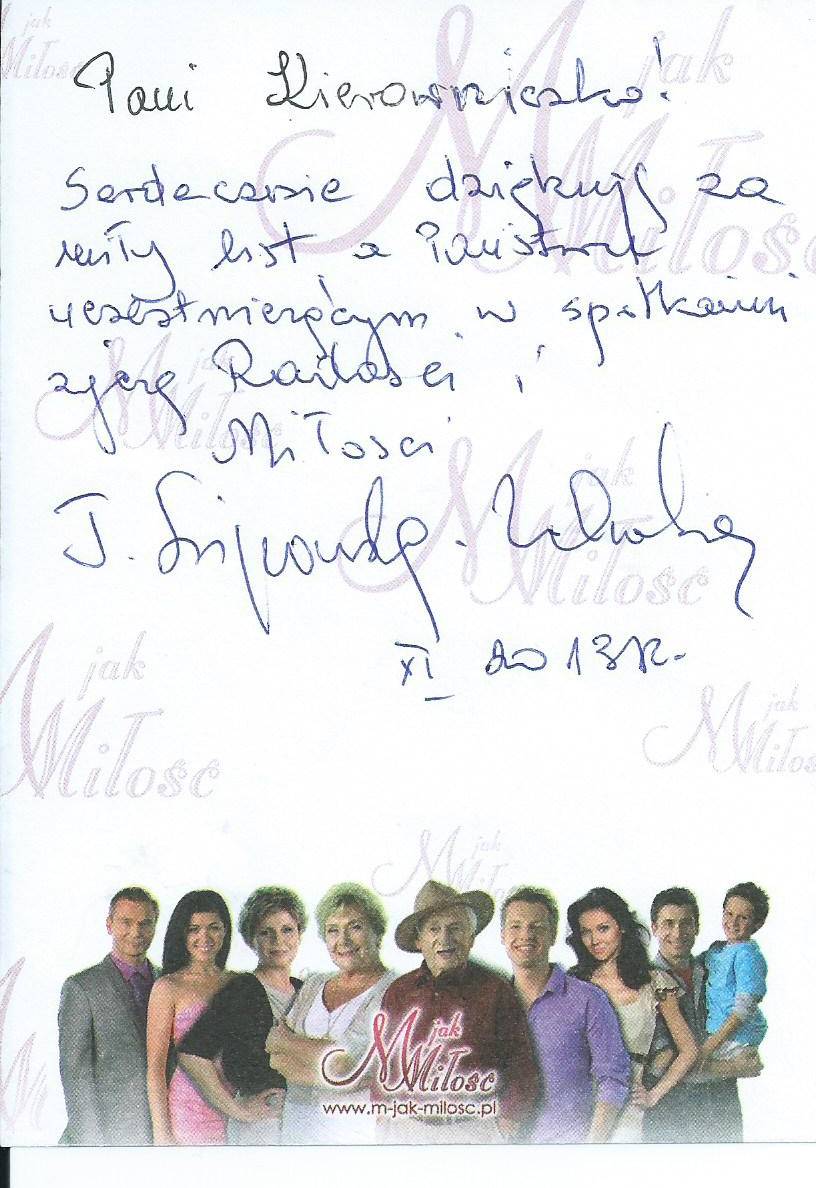 Pani Kierowniczko!
Serdecznie dziękuję za
miły list, a Państwu
uczestniczącym w spotkaniu
życzę Radości i
Miłości
T. Lipowska-
XI 2013 r.
M jak Miłość
www.m-jak-milosc.pl